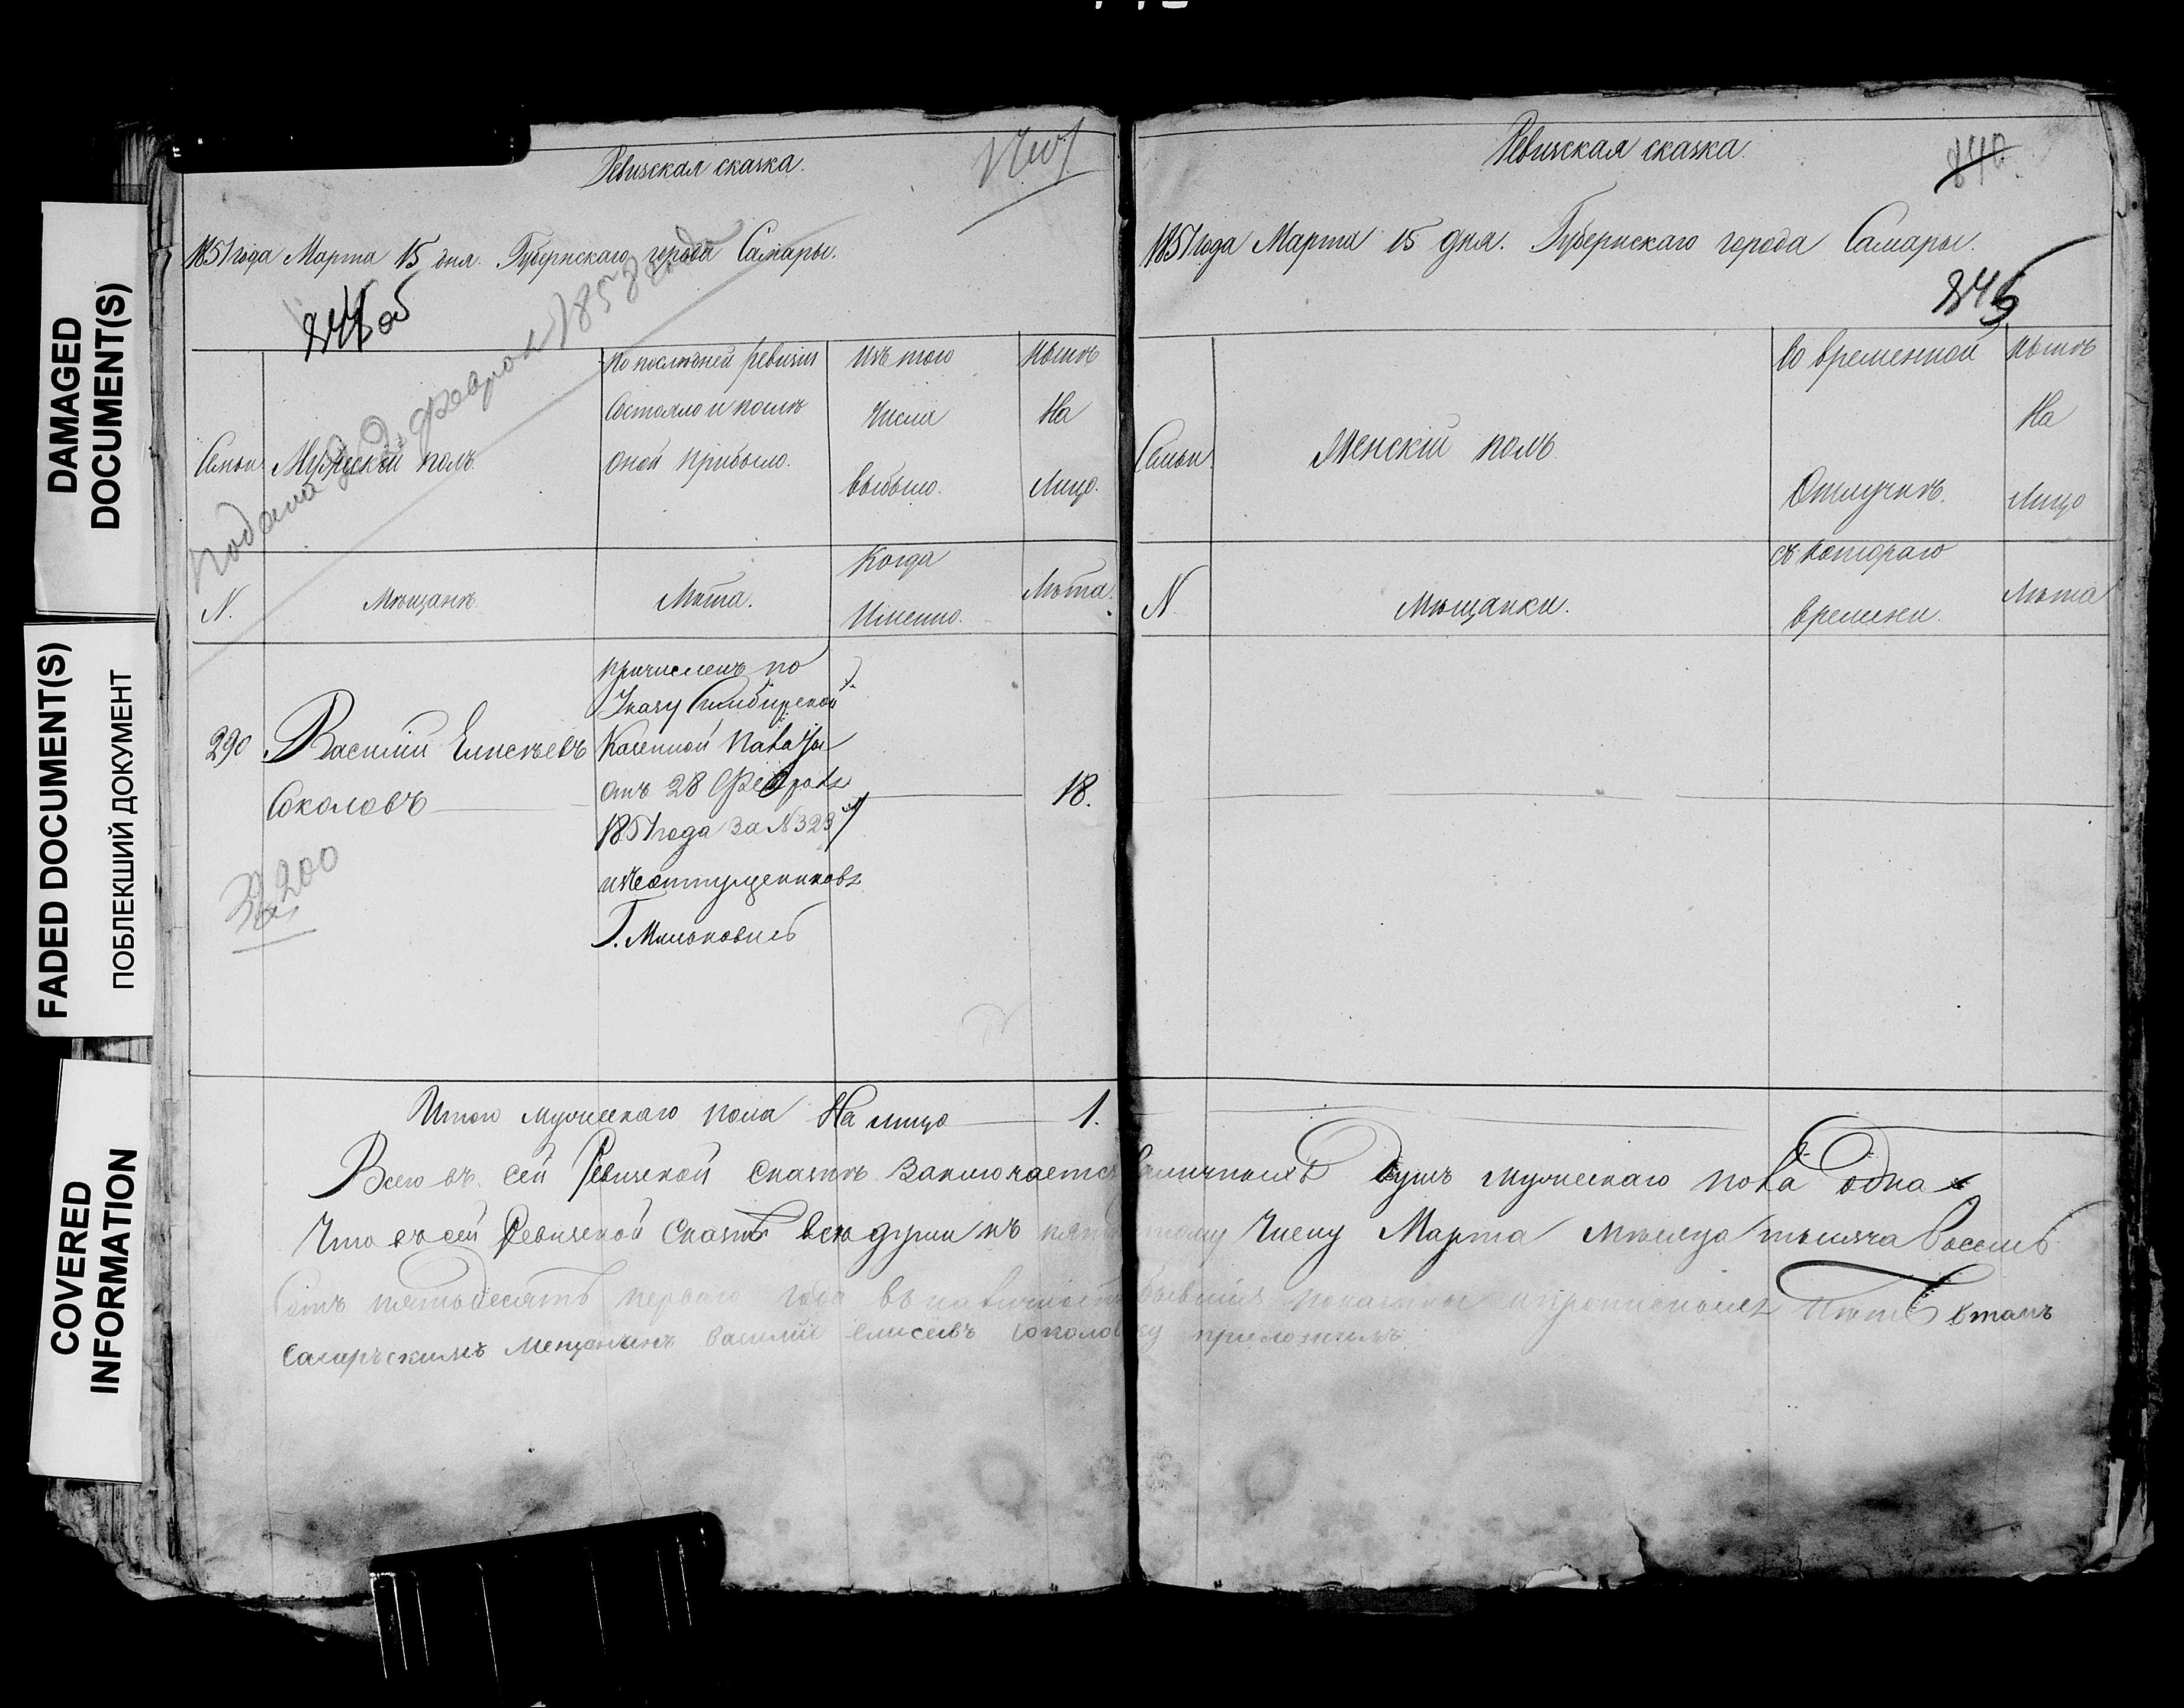 DAMAGED
DOCUMENT(S)
FADED DOCUMENT(S)
ПОБЛЕКШИЙ ДОКУМЕНТ
COVERED
INFORMATION
Ревизская сказка.
1851 года Марта 15 дня. Губернскаго города Самары.
Подана 2 Февраля 1858 года
Семьи
Мужеский полъ.
По последней ревизии
Состояло и после
оной прибыло.
Изъ того
Числа
выбыло.
Ныне
На
Лицо.
N.
Мещане.
Лета.
Когда
Именно.
Лета.
290
Василий Елисеевъ
Соколовъ
причисленъ по
Указу Симбирской
Казенной Палаты
отъ 28 Февраля
1851 года за N 323
изъ отпущенниковъ
Г.
18.
200
Итого мужескаго пола На лицо 1.
Ревизская сказка.
840.
1851 года Марта 15 дня. Губернскаго города Самары.
845
Семьи
Женский полъ.
Во временной
Отлучке.
Ныне
На
Лицо
N
Мещанки.
съ котораго
времени.
Лета
Всего въ сей Ревизской Сказке Заключается наличныхъ Душъ мужескаго пола одна
Что въ сей Ревизской Сказке все души къ пятнадцатому Числу Марта месяца тысяча восемь
Сотъ пятьдесятъ перваго года въ наличности бывшия показаны и прописныхъ нетъ втомъ
Мещанинъ Василий Елисеевъ Соколовъ руку приложилъ.